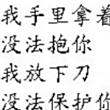 我手里拿着
没法抱你
我放下刀
没法保护你